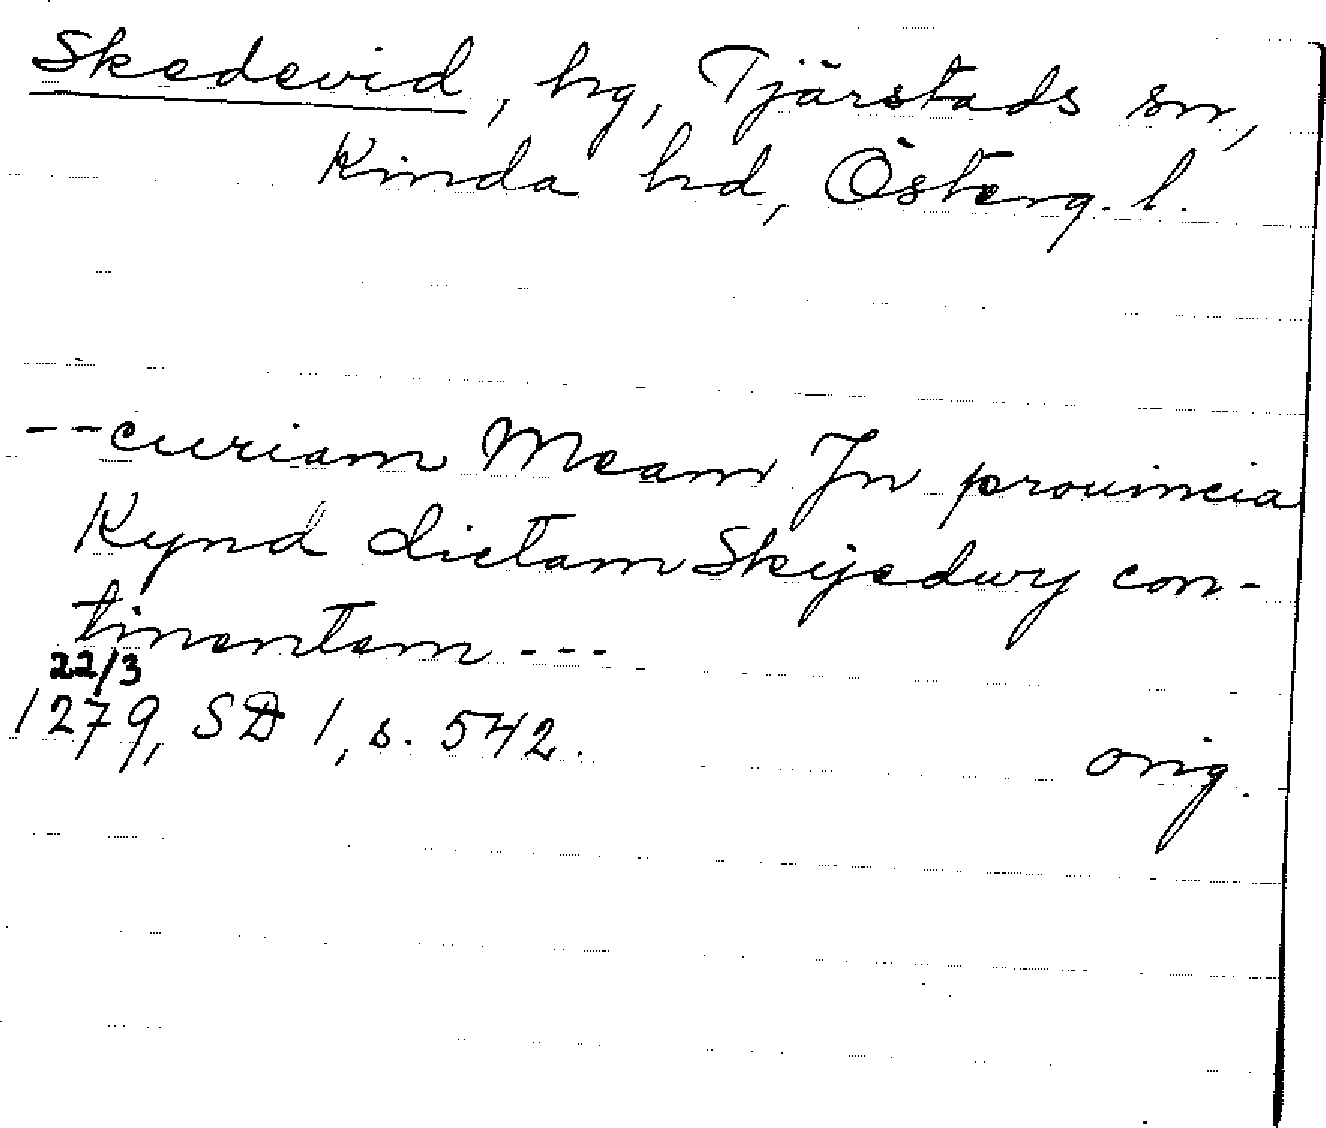 Skedevid, hg, Tjärstads sn,
Kinda hd, Österg. l.
--curiam Meam Jn prouincia
Kynd dictam Skyedwy con-
tinentem ---
22/3
1279, SD 1, s. 542.
orig.